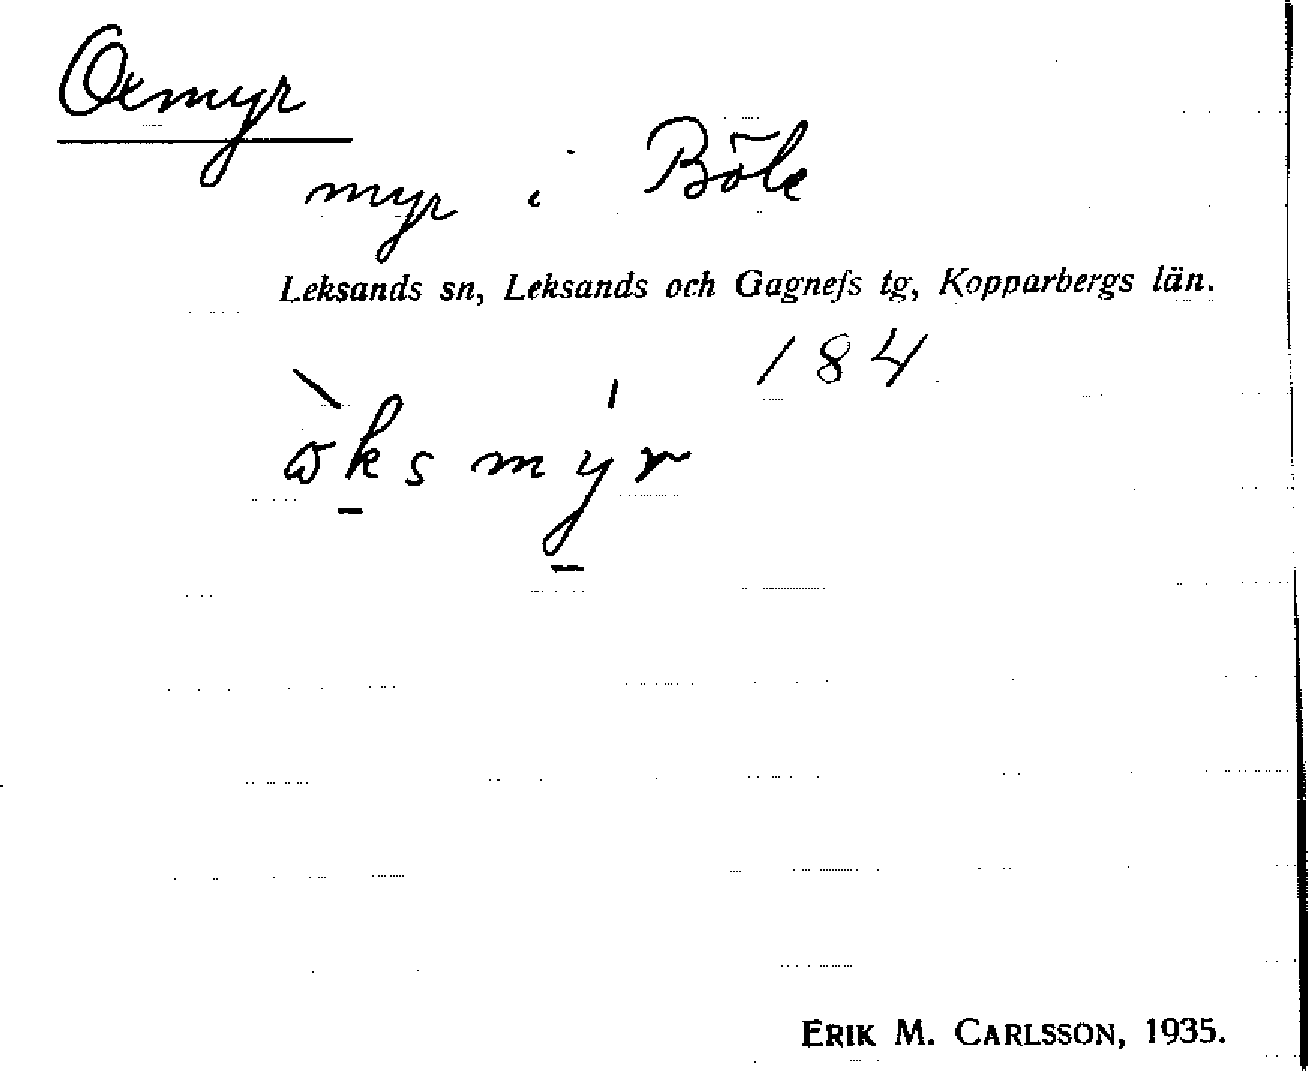 Oxmyr
myr i Böle
Leksands sn, Leksands och Gagnefs tg, Kopparbergs län.
184
Erik M. Carlsson, 1935.